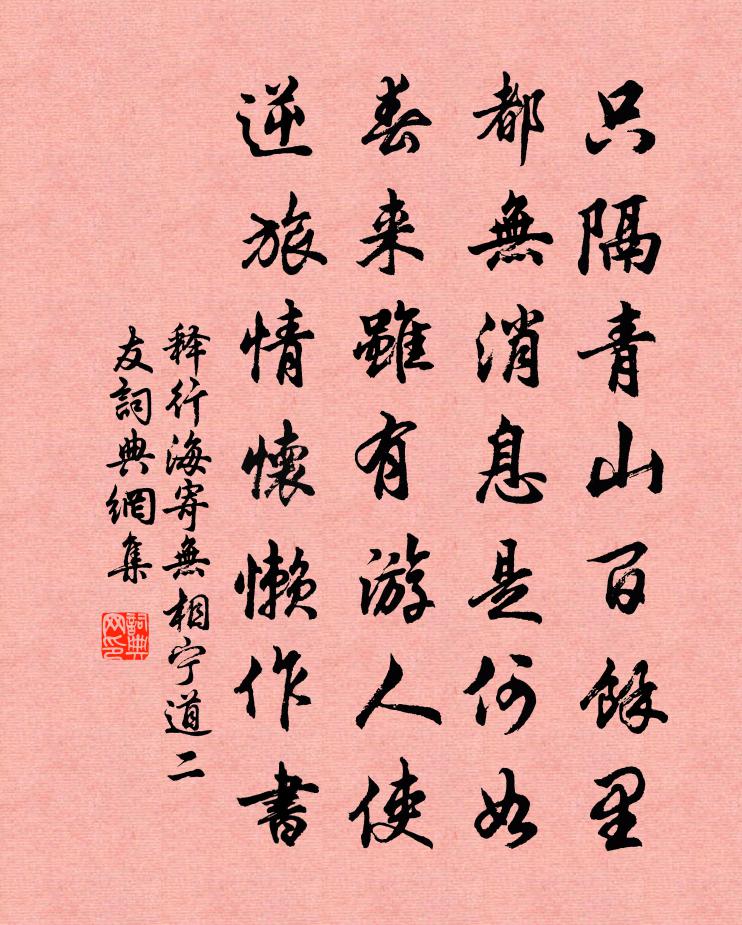 只隔青山百餘里
都無消息是何如
春来雖有游人使
逆旅情懷懶作書
释行海寄無相宁道二
友詞典網集
詞典网印